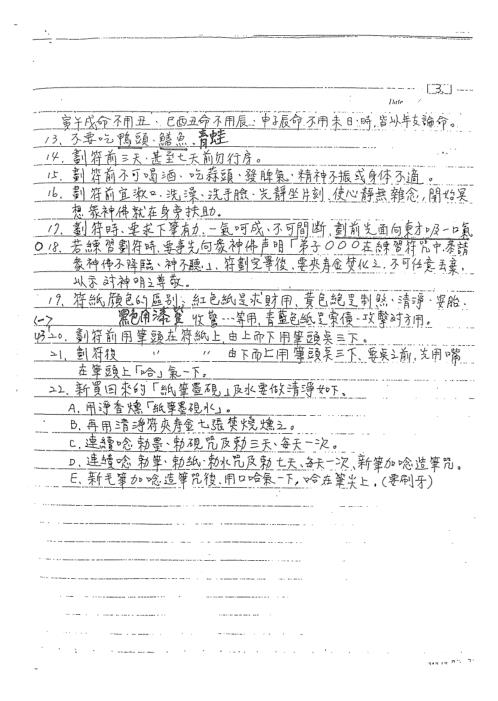 3.
Date
寅午戌命不用丑、巳酉丑命不用辰、申子辰命不用未日、時,皆以年支論命。
13. 不要吃鴨頭、鱔魚、青蛙
14. 劃符前三天、甚至七天前勿行房。
15. 劃符前不可喝酒、吃蒜頭、發脾氣、精神不振或身體不適。
16. 劃符前宜漱口、洗澡、洗手臉、先靜坐片刻,使心靜無雜念,開始冥
想眾神佛就在身旁扶助。
17. 劃符時、要求下筆有力、一氣呵成、不可間斷,劃前先面向東方吸一口氣
○18. 若練習劃符時、要事先向眾神佛声明「弟子○○○在練習符咒中、恭請
眾神佛不降臨、神不聽」,符劃完畢後,要夾壽金焚化之,不可任意丟棄,
以示對神明之尊敬。
19. 符紙顏色的區別;紅色紙是求財用、黃色紙是制煞、清淨、安胎、
黑色用
收驚…等用,青藍色紙是索債、攻擊對方用。
20. 劃符前用筆頭在符紙上,由上而下用筆頭
三下。
21. 劃符後 〃 〃 由下而上用筆頭
三下,要
之前,先用嘴
在筆頭上「哈」氣一下。
22. 新買回來的「紙筆墨硯」及水要做清淨如下。
A. 用淨香燻「紙筆墨硯水」。
B. 再用清淨符夾壽金七張焚燒燻之。
C. 連續唸勅墨、勅硯咒及勅三天、每天一次。
D. 連續唸勅筆、勅紙、勅水咒及勅七天、每天一次、新筆加唸造筆咒。
E. 新毛筆加唸造筆咒後、用口哈氣一下,哈在筆尖上。(要刷牙)